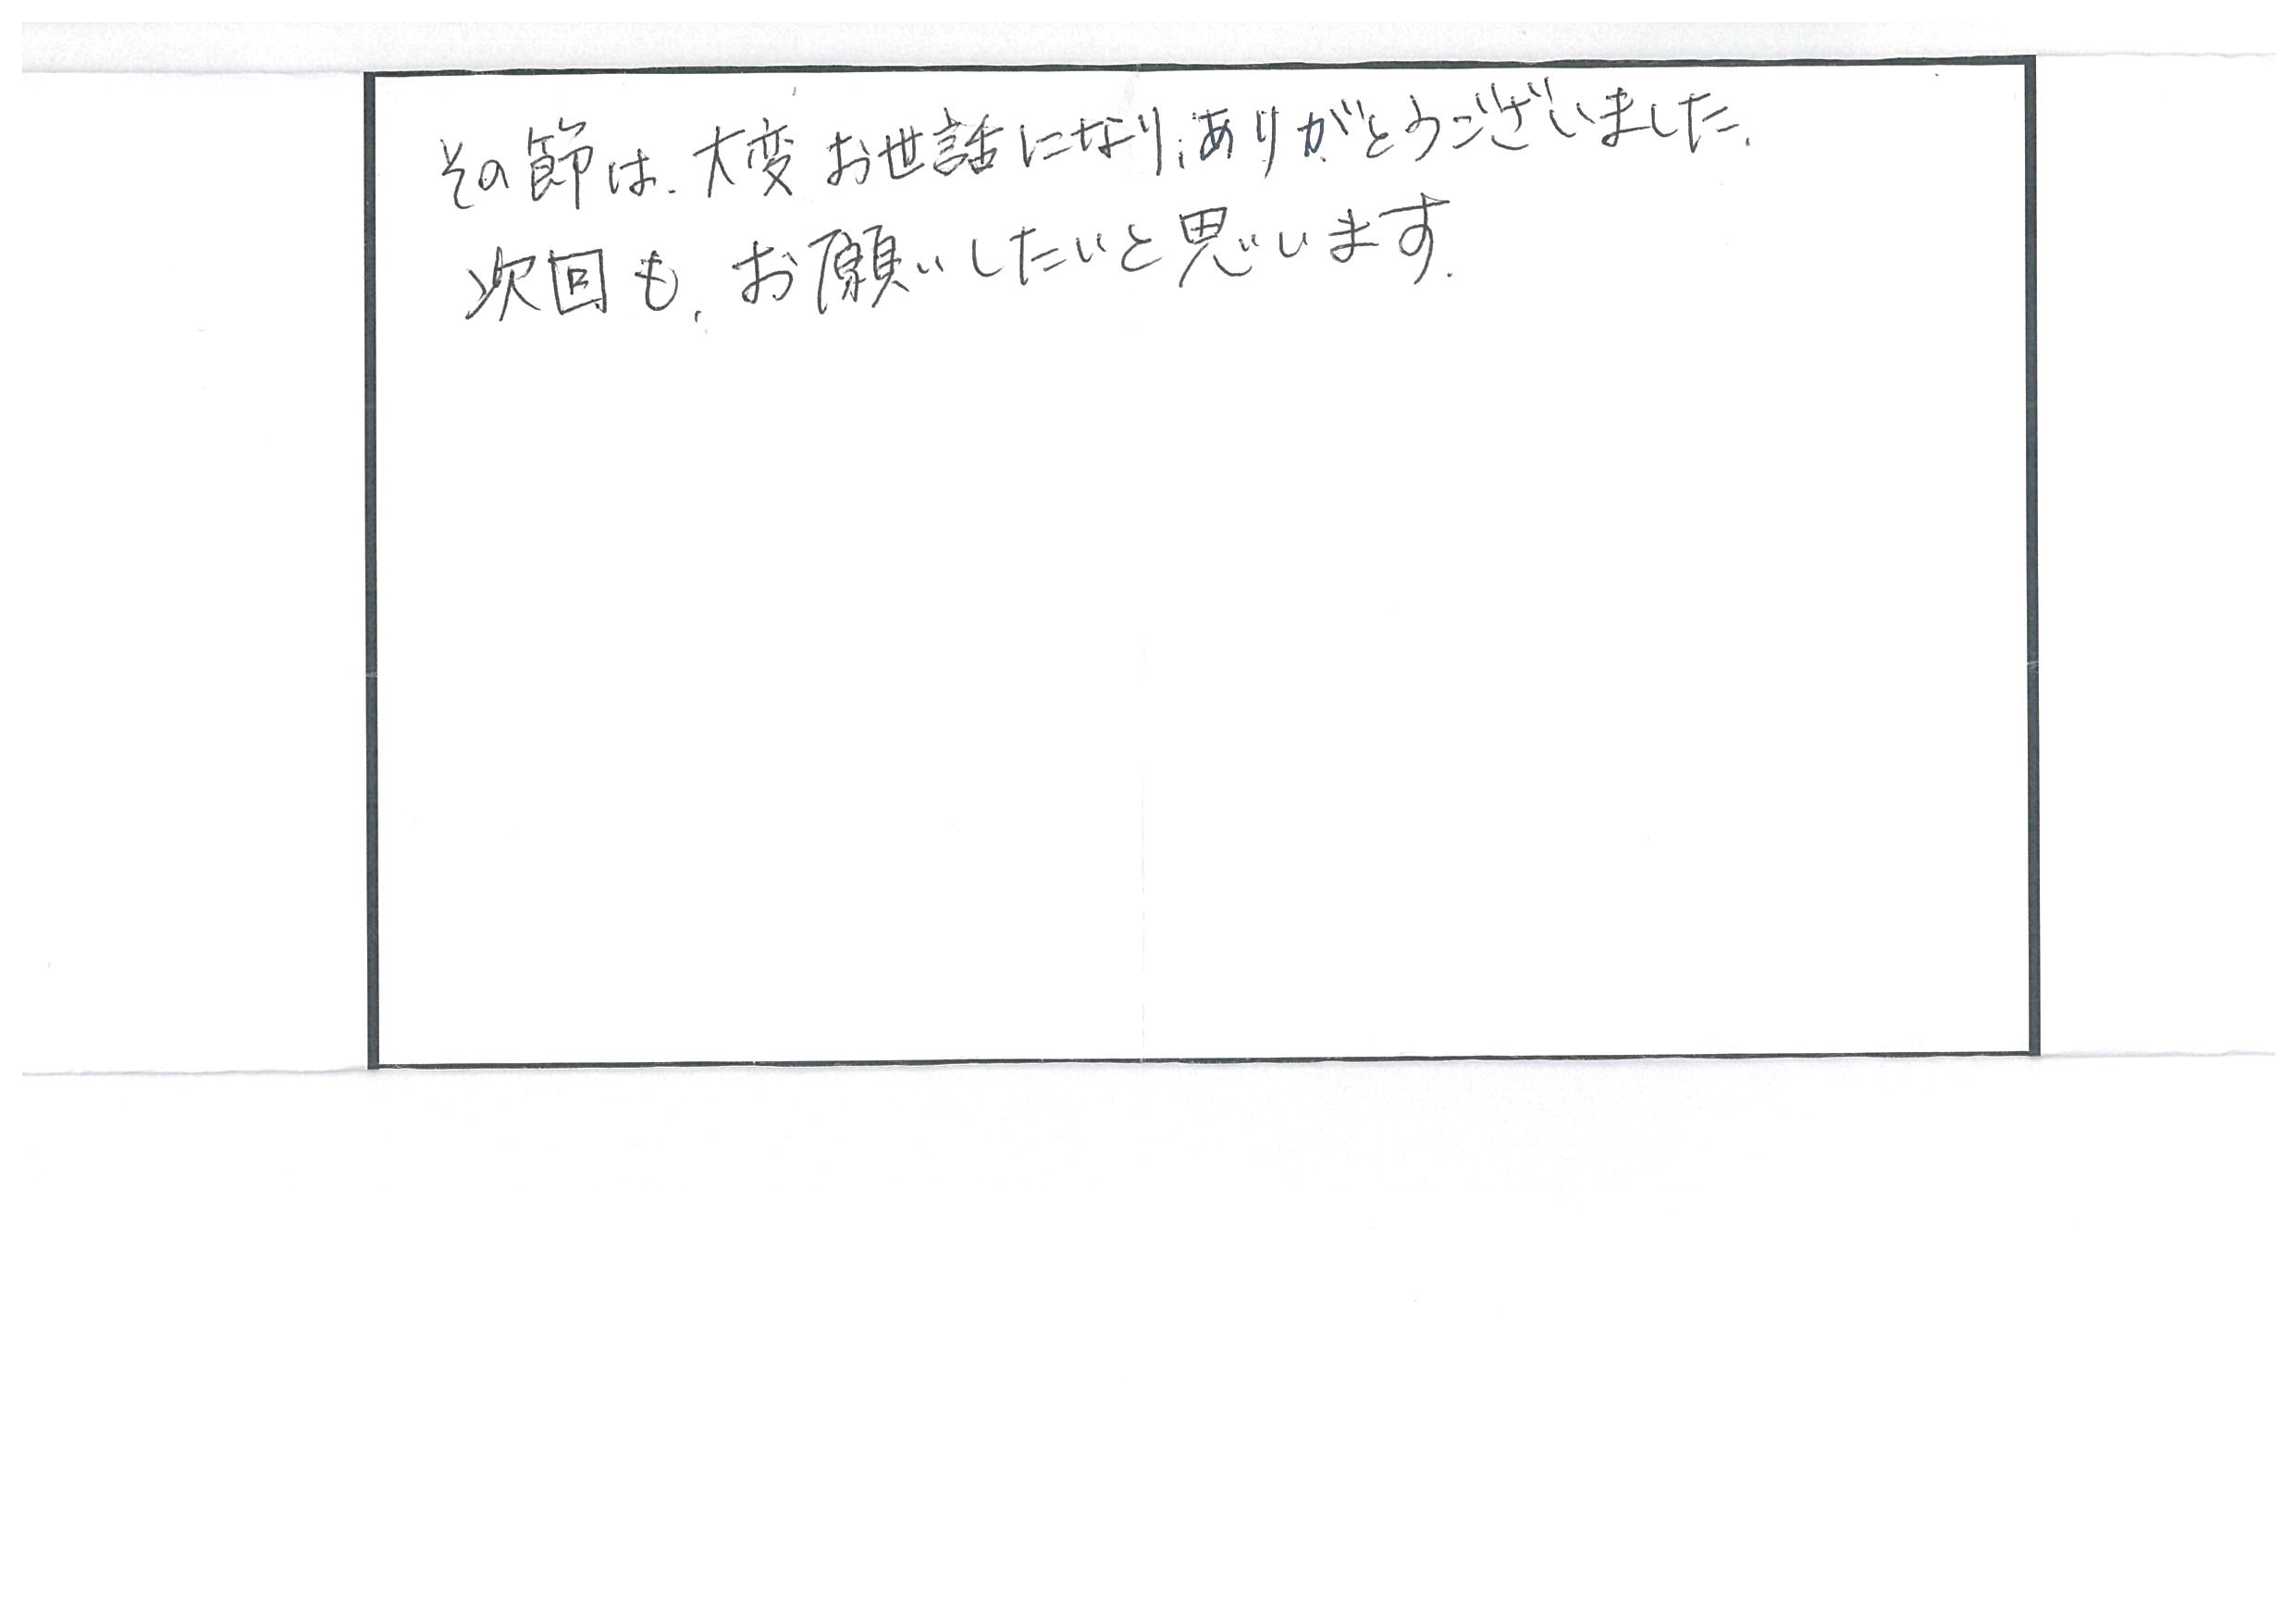 その節は、大変お世話になり、ありがとうございました。
次回も、お願いしたいと思います。